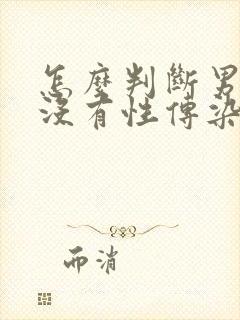 怎麼判斷男
沒有性傳染
而消